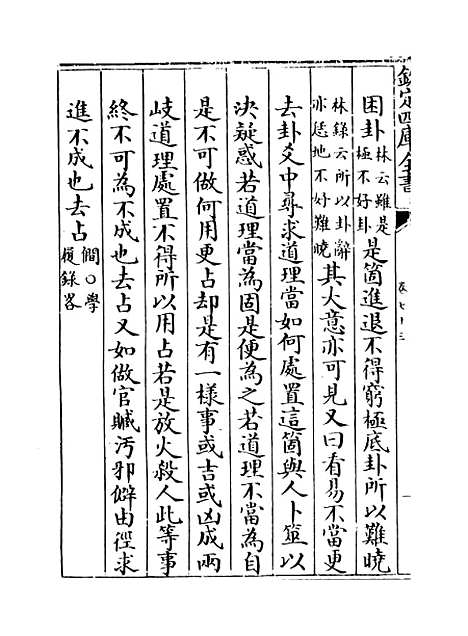 欽定四庫全書
卷七十三
困卦林云雖是極不好卦是箇進退不得窮極底卦所以難曉
林錄云所以卦辭亦恁地不好難曉其大意亦可見又曰看易不當更
去卦爻中尋求道理當如何處置這箇與人卜筮以
決疑惑若道理當為固是便為之若道理不當為自
是不可做何用更占却是有一樣事或吉或凶成兩
岐道理處置不得所以用占若是放火殺人此等事
終不可為不成也去占又如做官贓汚邪僻由徑求
進不成也去占僩○學履錄畧